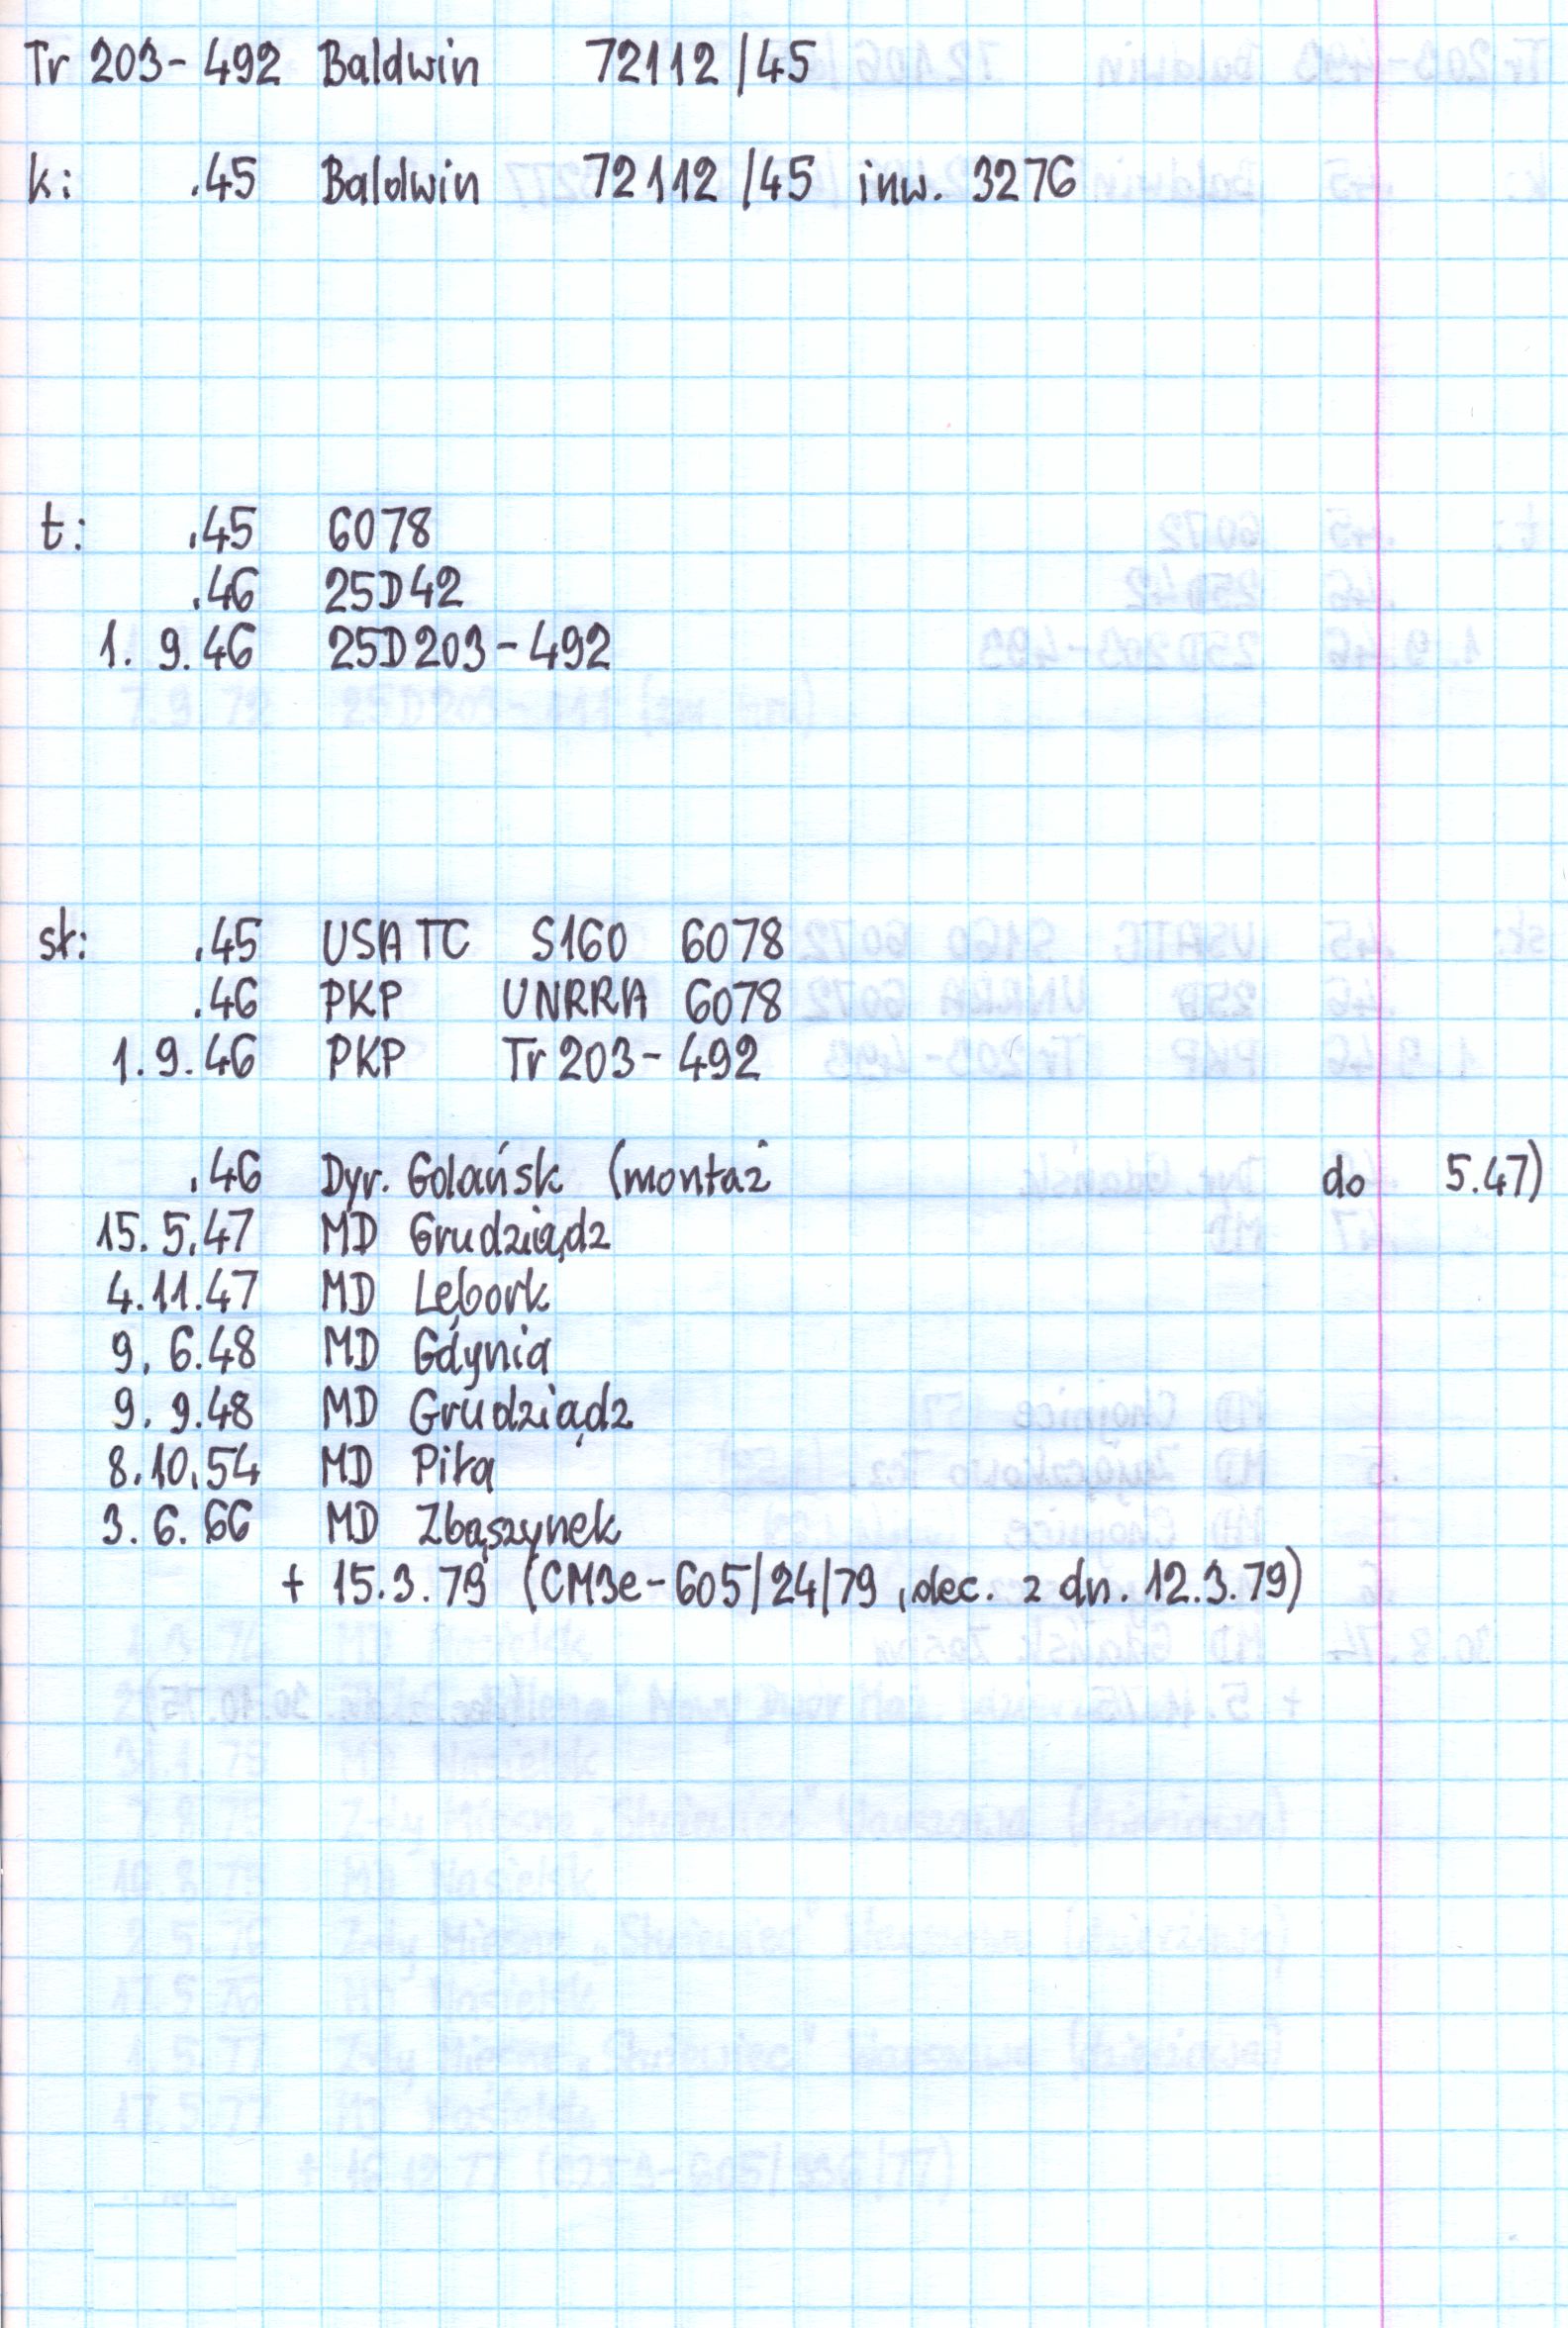 Tr 203-492 Baldwin 72112/45
k: .45 Baldwin 72112/45 inw. 3276
t: .45 6078
.46 25D42
1. 9.46 25D203-492
st: .45 USATC S160 6078
.46 PKP UNRRA 6078
1.9.46 PKP Tr 203-492
.46 Dyr. Gdańsk (montaż do 5.47)
15. 5.47 MD Grudziądz
4.11.47 MD Lębork
9. 6.48 MD Gdynia
9. 9.48 MD Grudziądz
8.10.54 MD Piła
3. 6. 66 MD Zbąszynek
+ 15.3.79 (CM3e-605/24/79, dec. z dn. 12.3.79)